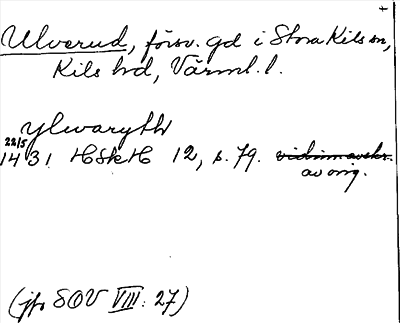 +
Ulverud, försv. gd i Stora Kils sn,
Kils hd, Värml. l.
ylwaryth
22/5
1431 HSkH 12, s. 79. vidim avskr.
av orig.
(jfr SOV VIII: 27)